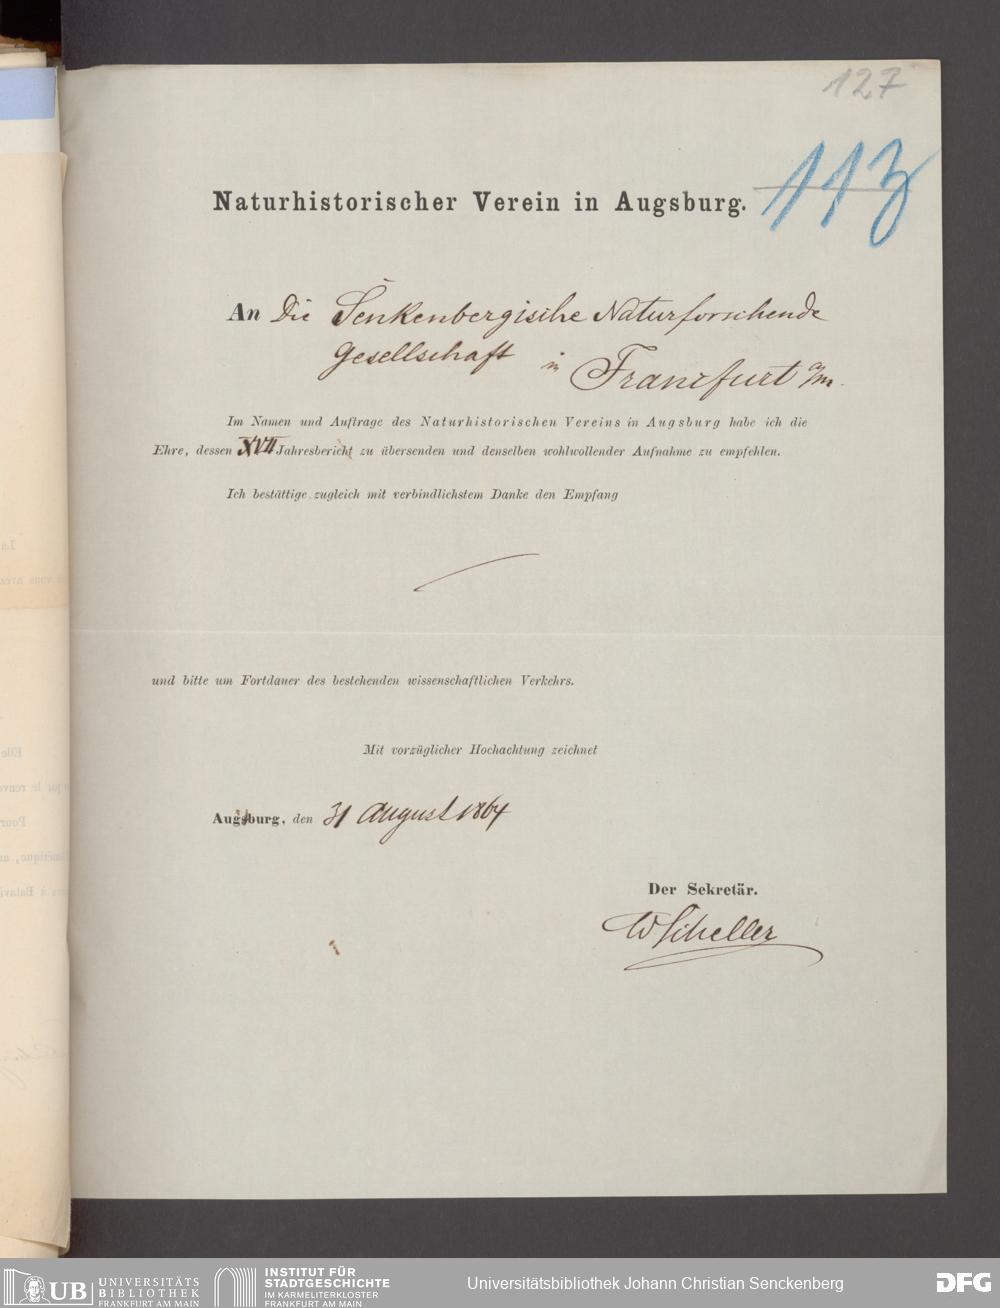 127
113
Naturhistorischer Verein in Augsburg.
An Die Senkenbergische Naturforschende
Gesellschaft in Francfurt a/m.
Im Namen und Auftrage des Naturhistorischen Vereins in Augsburg habe ich die
Ehre, dessen XVII Jahresbericht zu übersenden und denselben wohlwollender Aufnahme zu empfehlen.
Ich bestättige zugleich mit verbindlichstem Danke den Empfang
und bitte um Fortdauer des bestehenden wissenschaftlichen Verkehrs.
Mit vorzüglicher Hochachtung zeichnet
Augsburg, den 31 August 1864
Der Sekretär.
W Scheller
UB UNIVERSITÄTS
BIBLIOTHEK
FRANKFURT AM MAIN
INSTITUT FÜR
STADTGESCHICHTE
IM KARMELITERKLOSTER
FRANKFURT AM MAIN
Universitätsbibliothek Johann Christian Senckenberg
DFG